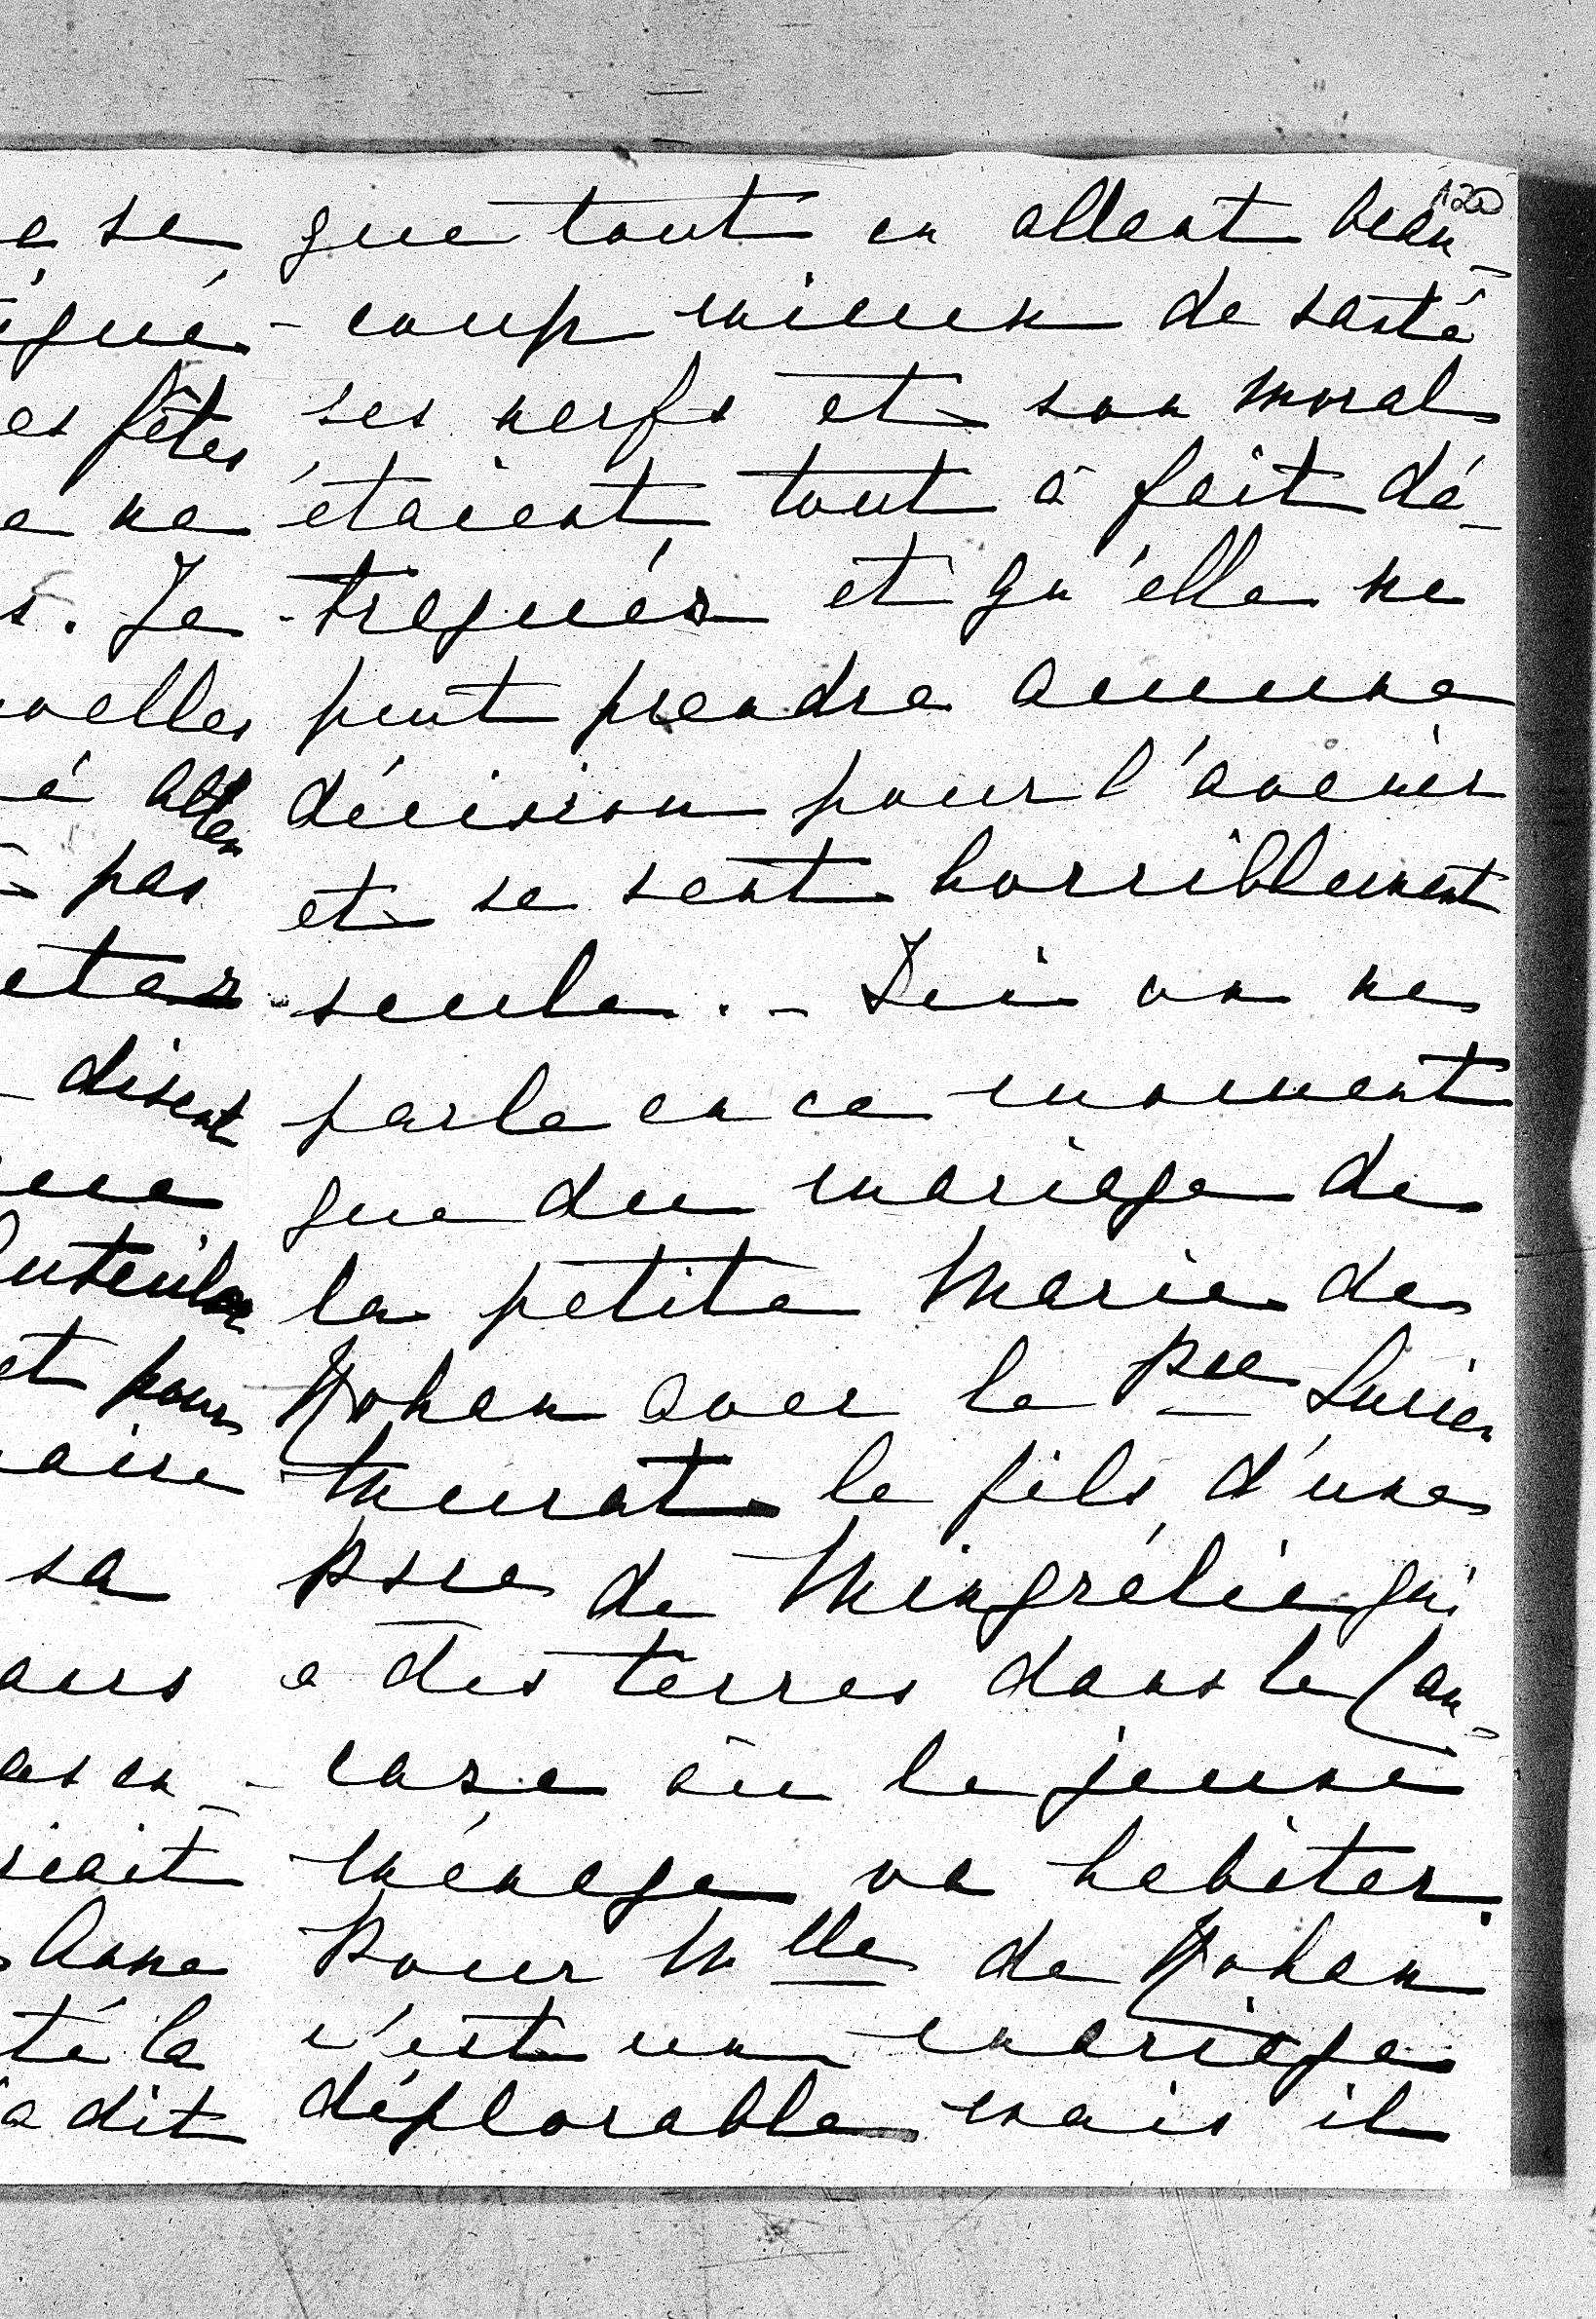 120
que tout en allant beau-
-coup mieux de santé
ses nerfs et son moral
étaient tout à fait dé-
-traqués et qu'elle ne
peut prendre aucune
décision pour l'avenir
et se sent horriblement
seule. - Ici on ne
parle en ce moment
que du mariage de
la petite Marie de
Rohan avec le Pce Lucien
Murat le fils d'une
Psse de Mingrélie qui
a des terres dans le Cau-
-case où le jeune
ménage va habiter.
Pour Mlle de Rohan
c'est un mariage
déplorable mais il
e se
es fêtes
e ne
s. Je
pas
disent
et pour
sa
Anne
té la
a dit